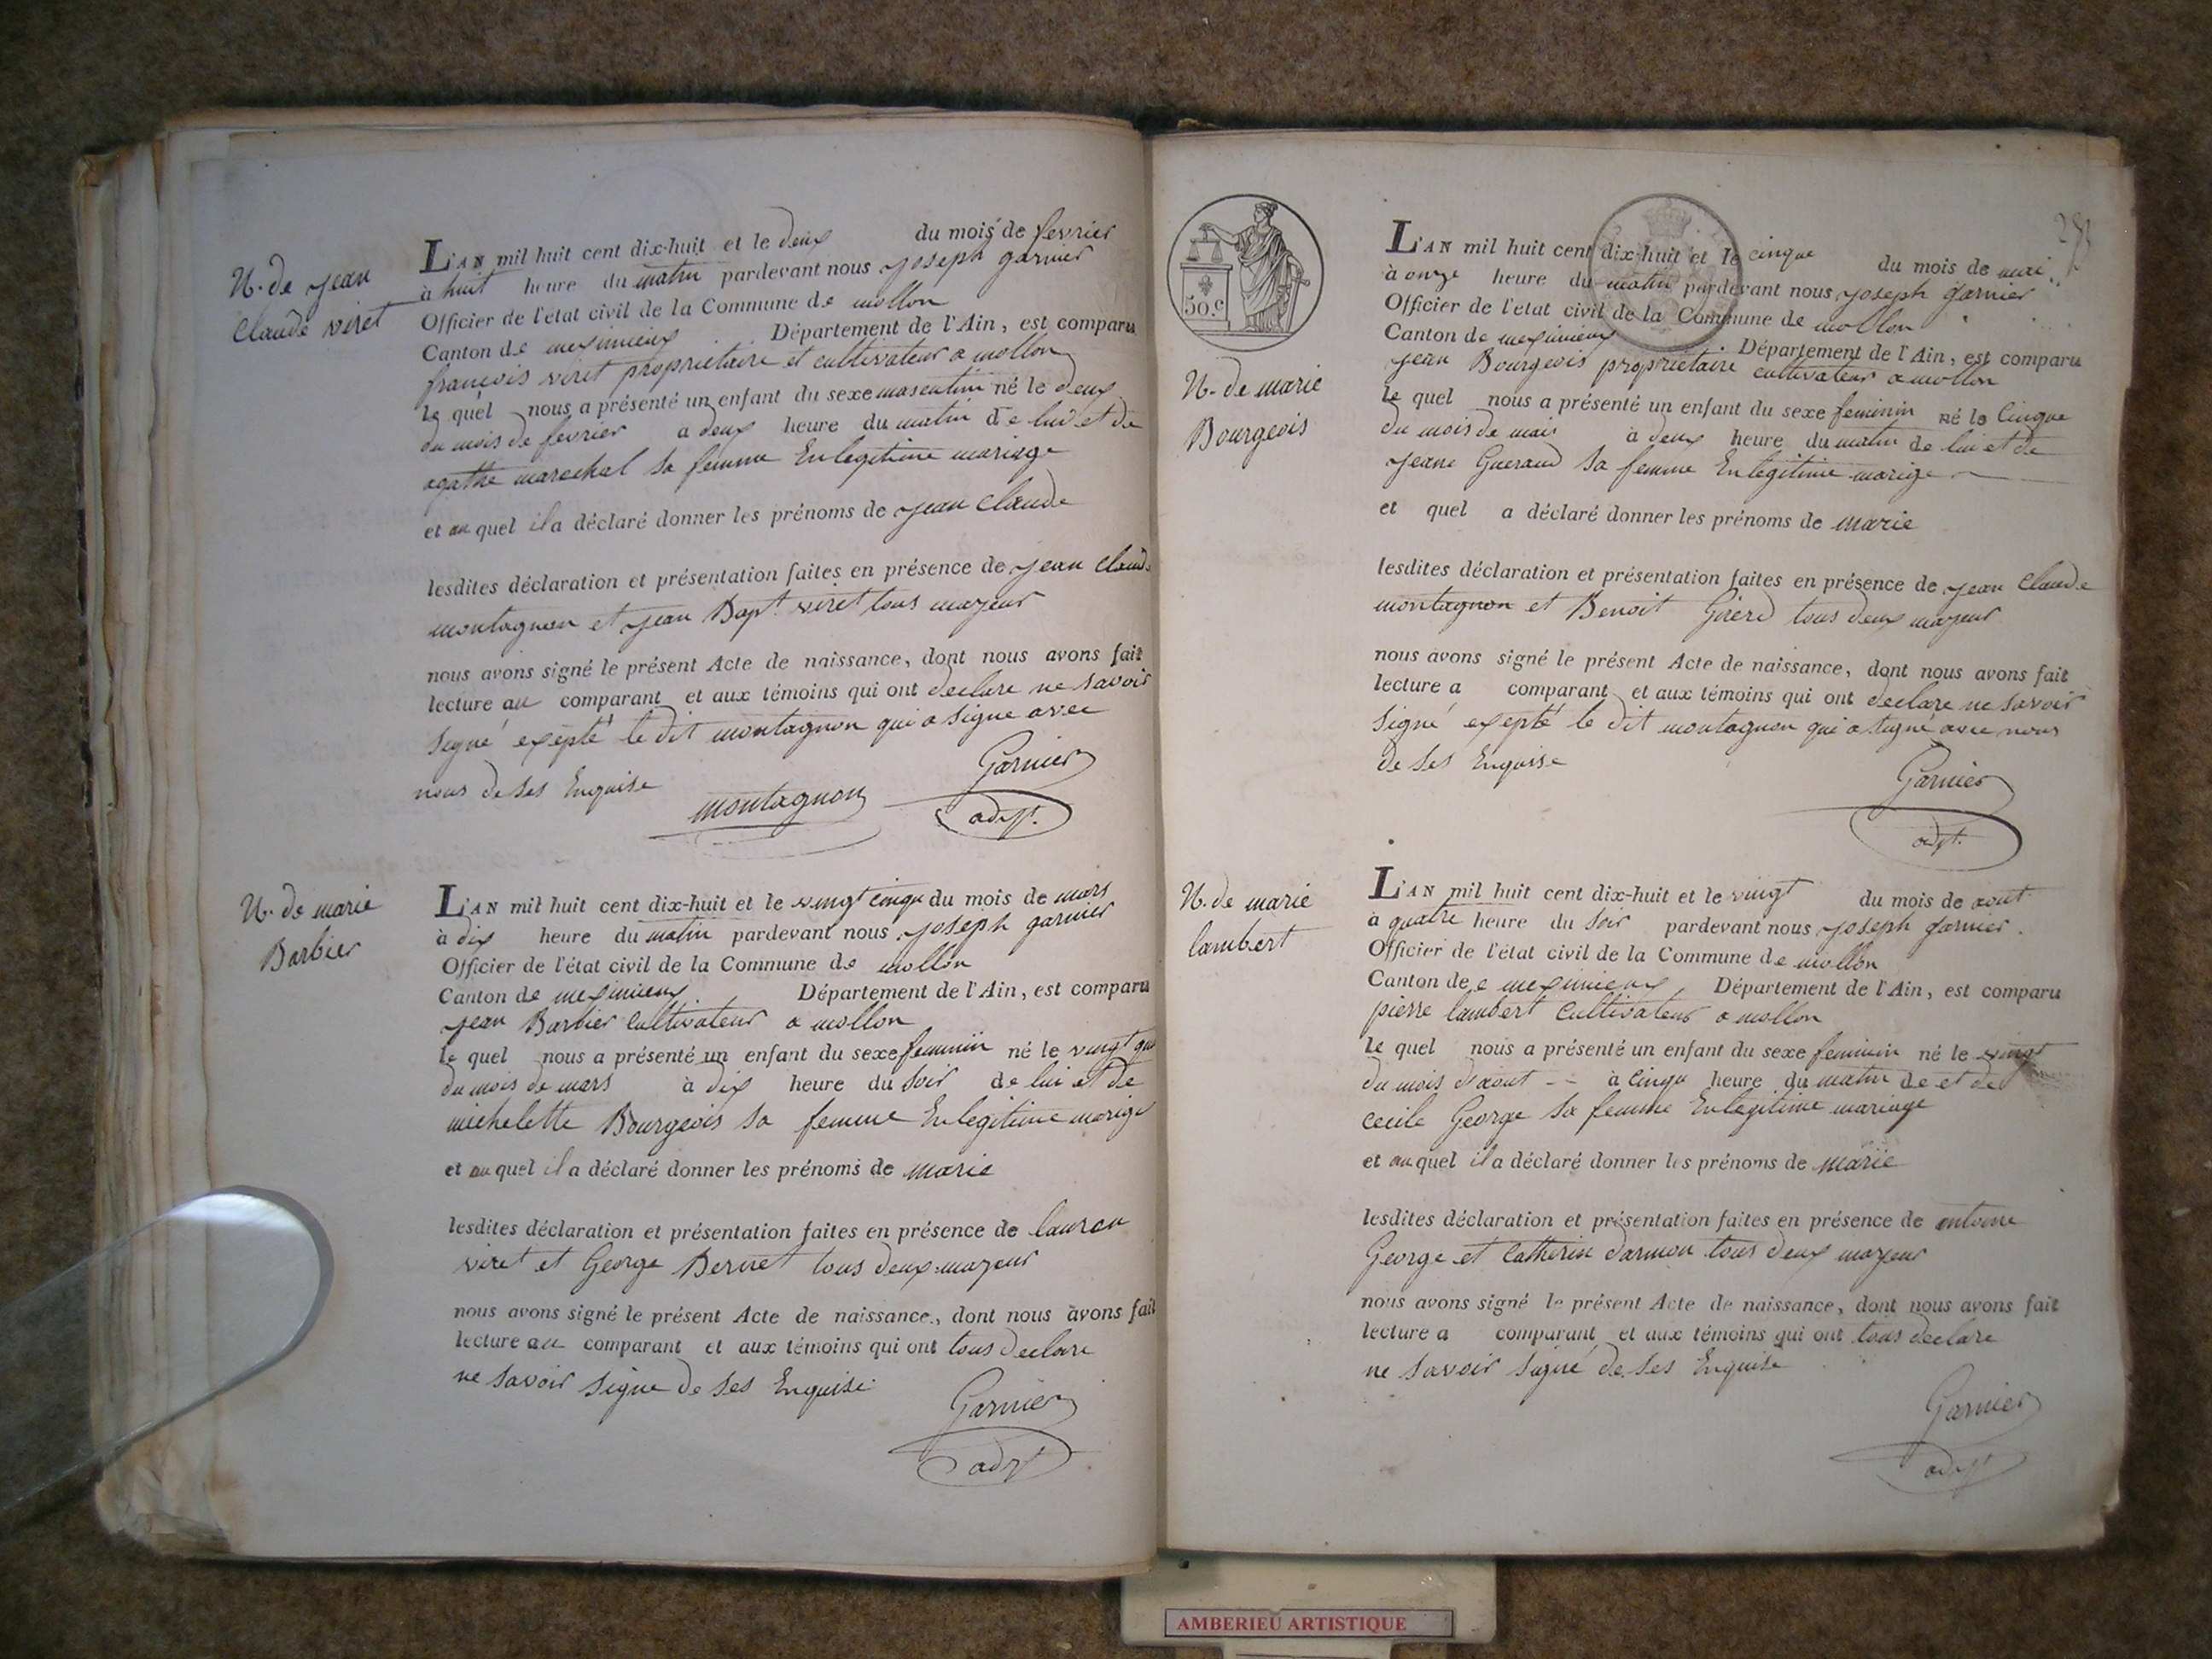 N. de jean
claude viret
L'AN mil huit cent dix-huit et le deux du mois de fevrier
à huit heure du matin pardevant nous joseph garnier
Officier de l'état civil de la Commune de mollon
Canton de meximieux Département de l'Ain, est comparu
francois viret proprietaire et cultivateur a mollon
le quel nous a présenté un enfant du sexe masculin né le deux
du mois de fevrier a deux heure du matin de lui et de
agathe marechal sa femme En legitime mariage
et au quel il a déclaré donner les prénoms de jean claude
lesdites déclaration et présentation faites en présence de jean claude
montagnon et jean Bapt. viret tous majeur
nous avons signé le présent Acte de naissance, dont nous avons fait
lecture au comparant et aux témoins qui ont declare ne savoir
signé exepté le dit montagnon qui a signe avec
nous de ses Enquise
montagnon
Garnier
adjt.
N. de marie
Barbier
L'AN mil huit cent dix-huit et le vingt cinqu du mois de mars
à dix heure du matin pardevant nous joseph garnier
Officier de l'état civil de la Commune de mollon
Canton de meximieux Département de l'Ain, est comparu
jean Barbier cultivateur a mollon
le quel nous a présenté un enfant du sexe feminin né le vingt
du mois de mars à dix heure du soir de lui et de
michelette Bourgeois sa femme En legitime marige
et au quel il a déclaré donner les prénoms de marie
lesdites déclaration et présentation faites en présence de lauren
viret et George tous deux majeur
nous avons signé le présent Acte de naissance, dont nous avons fait
lecture au comparant et aux témoins qui ont tous declare
ne savoir signe de ses Enquise
Garnier
adjt
50.c
N. de marie
Bourgeois
L'AN mil huit cent dix-huit et le cinque du mois de mai
à onze heure du matin pardevant nous joseph garnier
Officier de l'état civil de la Commune de mollon
Canton de meximieux Département de l'Ain, est comparu
jean Bourgeois proprietaire cultivateur a mollon
le quel nous a présenté un enfant du sexe feminin né le Cinque
du mois de mai à deux heure du matin de lui et de
jeane Gueraud sa femme En legitime marige
et quel a déclaré donner les prénoms de marie
lesdites déclaration et présentation faites en présence de jean claude
montagnon et Benoit Girerd tous deux majeur
nous avons signé le présent Acte de naissance, dont nous avons fait
lecture a comparant et aux témoins qui ont declare ne savoir
signé exepté le dit montagnon qui a signé avec nous
de ses Enquise
Garnier
adjt.
N. de marie
lambert
L'AN mil huit cent dix-huit et le vingt du mois de aout
à quatre heure du soir pardevant nous joseph garnier
Officier de l'état civil de la Commune de mollon
Canton de meximieux Département de l'Ain, est comparu
pierre lambert Cultivateur a mollon
le quel nous a présenté un enfant du sexe feminin né le vingt
du mois d'aout -- à cinqu heure du matin de et de
cecile George sa femme En legitime mariage
et au quel il a déclaré donner les prénoms de marie
lesdites déclaration et présentation faites en présence de antoine
George et Catherin darmon tous deux majeur
nous avons signé le présent Acte de naissance, dont nous avons fait
lecture a comparant et aux témoins qui ont tous declare
ne savoir signé de ses Enquise
Garnier
adjt
AMBERIEU ARTISTIQUE